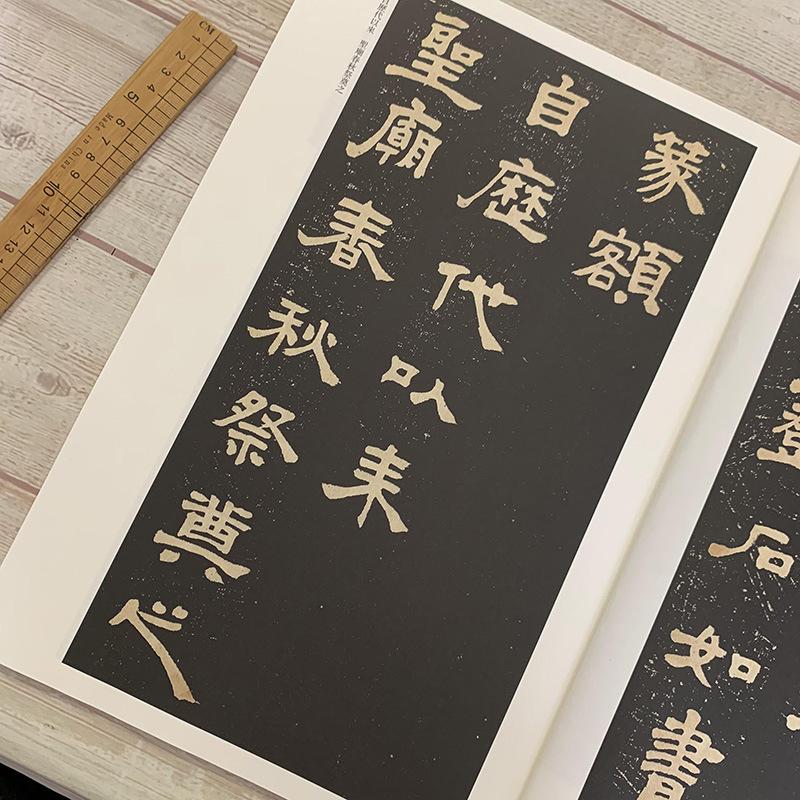 石如書
篆額
自歷代以來
聖廟春秋祭奠之
自歷代以來　聖廟春秋祭奠之
CM 1 2 3 4 5 6 7 8 9 10 11 12 13
Made in China